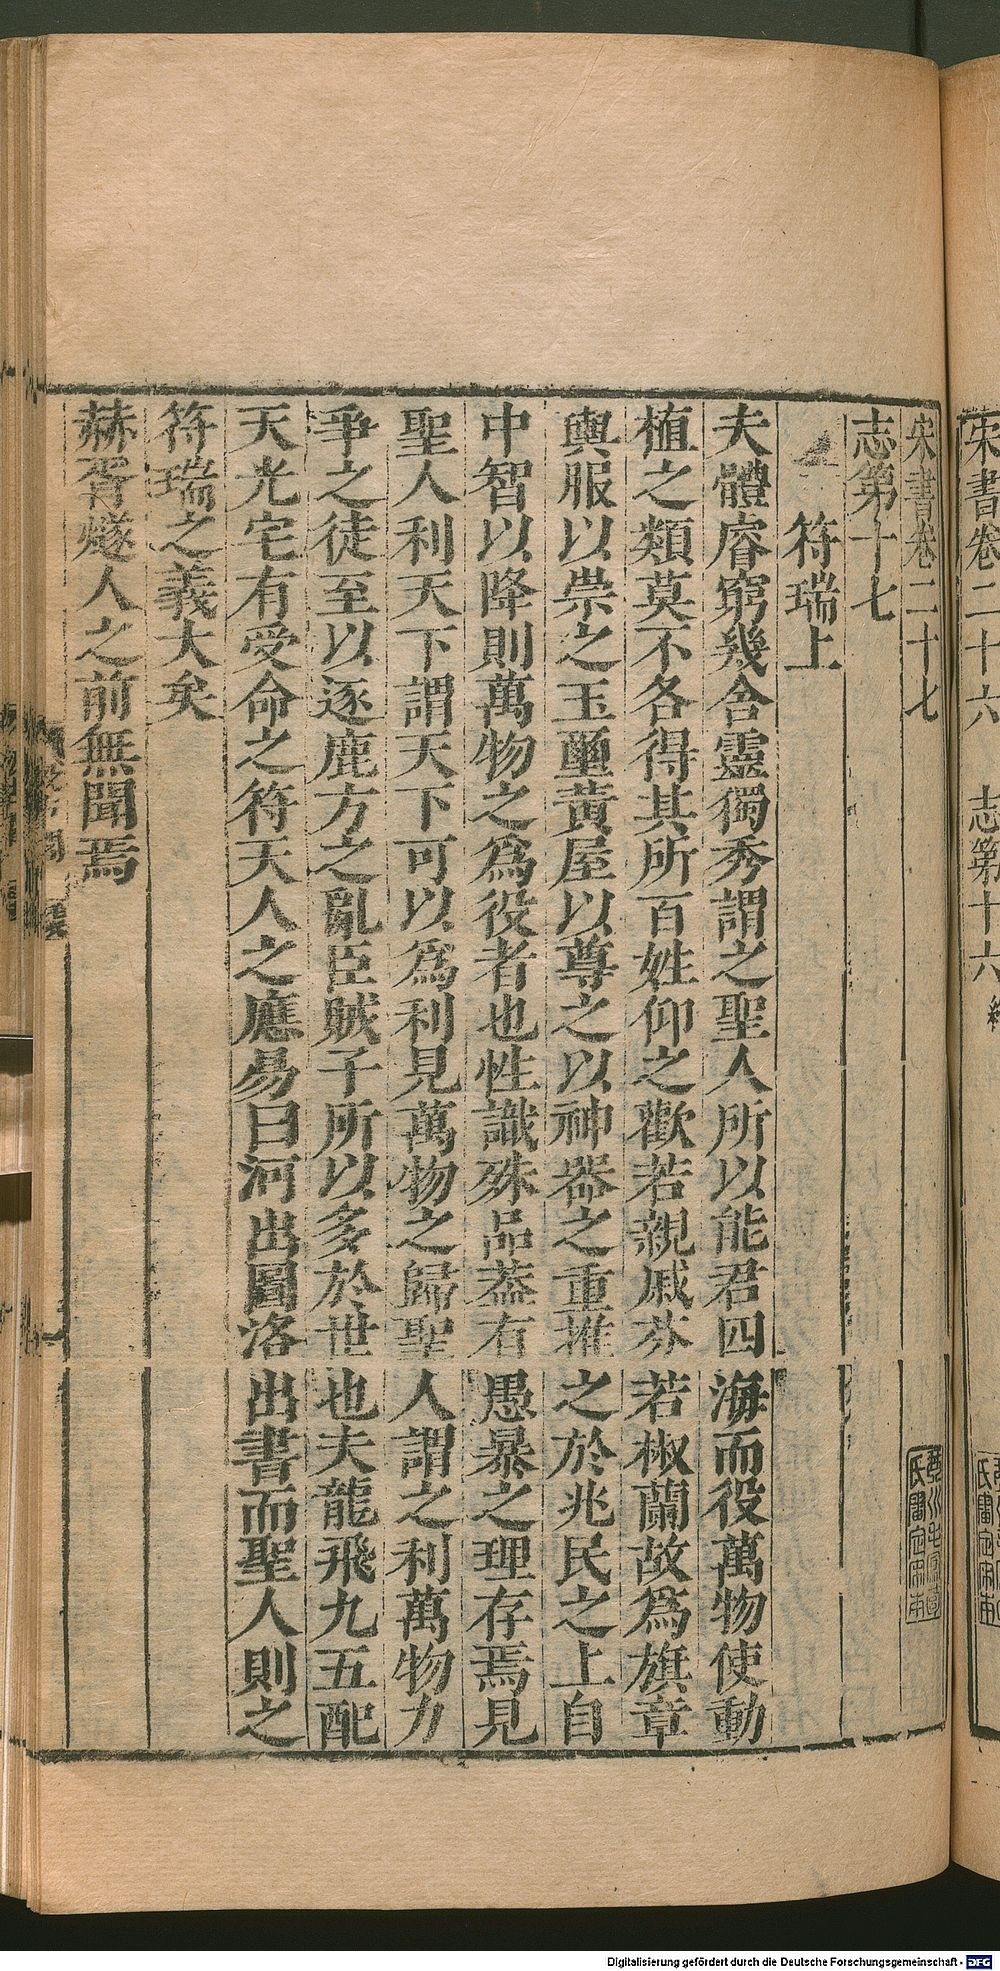 宋書卷二十六　志第十六
宋書卷二十七
志第十七
符瑞上
夫體睿窮幾含靈獨秀謂之聖人所以能君四海而役萬物使動
植之類莫不各得其所百姓仰之歡若親戚芬若椒蘭故爲旗章
輿服以崇之玉璽黃屋以尊之以神器之重推之於兆民之上自
中智以降則萬物之爲役者也性識殊品葢有愚暴之理存焉見
聖人利天下謂天下可以爲利見萬物之歸聖人謂之利萬物力
爭之徒至以逐鹿方之亂臣賊子所以多於世也夫龍飛九五配
天光宅有受命之符天人之應易曰河出圖洛出書而聖人則之
符瑞之義大矣
赫胥燧人之前無聞焉
Digitalisierung gefördert durch die Deutsche Forschungsgemeinschaft - DFG